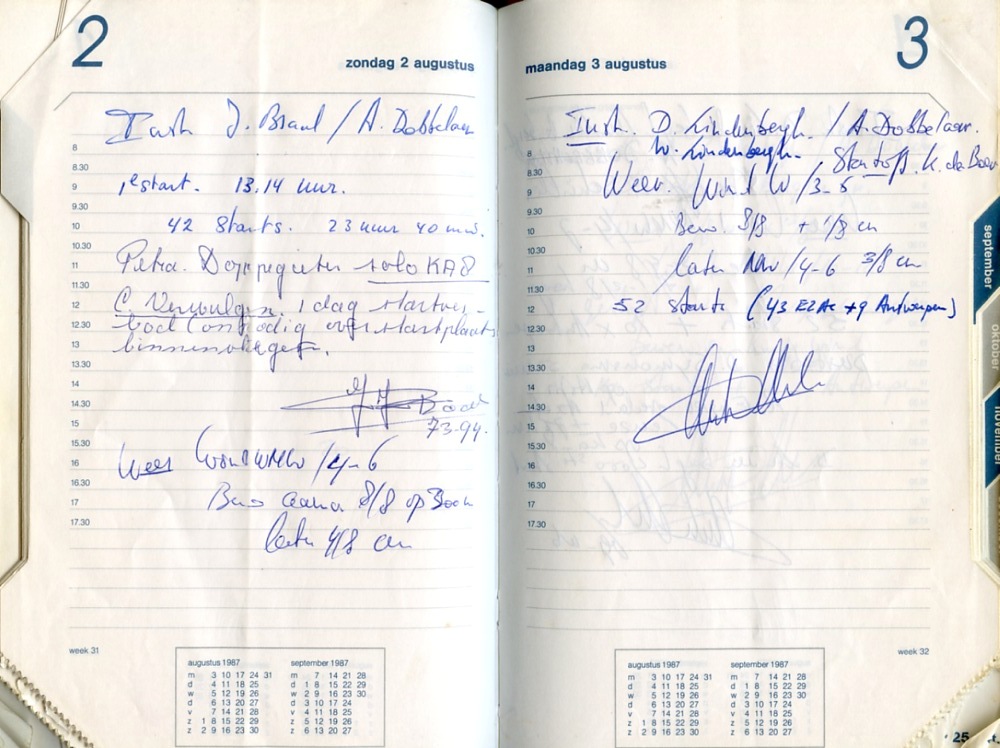 2
zondag 2 augustus
Instr. J. Braul / A. Dobbelaer
8
8.30
9
1e start. 13.14 uur.
9.30
10
42 starts. 23 uur 40 min.
10.30
11
Petra solo KA8
11.30
12
1 dag startver-
12.30
bod over startplaats
13
binnenvliegen.
13.30
14
14.30
15
73.94.
15.30
16
Weer Wind WNW / 4-6
16.30
Bew 8/8 op
17
later 4/8 cu
17.30
week 31
augustus 1987
m 3 10 17 24 31
d 4 11 18 25
w 5 12 19 26
d 6 13 20 27
v 7 14 21 28
z 1 8 15 22 29
z 2 9 16 23 30
september 1987
m 7 14 21 28
d 1 8 15 22 29
w 2 9 16 23 30
d 3 10 17 24
v 4 11 18 25
z 5 12 19 26
z 6 13 20 27
3
maandag 3 augustus
Instr. D. Lindenbergh. / A. Dobbelaer.
W. Lindenbergh. Startoff. K. de Boer
8
8.30
Weer. Wind W / 3-5
9
9.30
10
Bew. 8/8 + 1/8 cu
10.30
later NW / 4-6 3/8 cu
11
11.30
12
52 starts (43 EZAC + 9 Antwerpen)
12.30
13
13.30
14
14.30
15
15.30
16
16.30
17
17.30
week 32
augustus 1987
m 3 10 17 24 31
d 4 11 18 25
w 5 12 19 26
d 6 13 20 27
v 7 14 21 28
z 1 8 15 22 29
z 2 9 16 23 30
september 1987
m 7 14 21 28
d 1 8 15 22 29
w 2 9 16 23 30
d 3 10 17 24
v 4 11 18 25
z 5 12 19 26
z 6 13 20 27
september
oktober
november
25